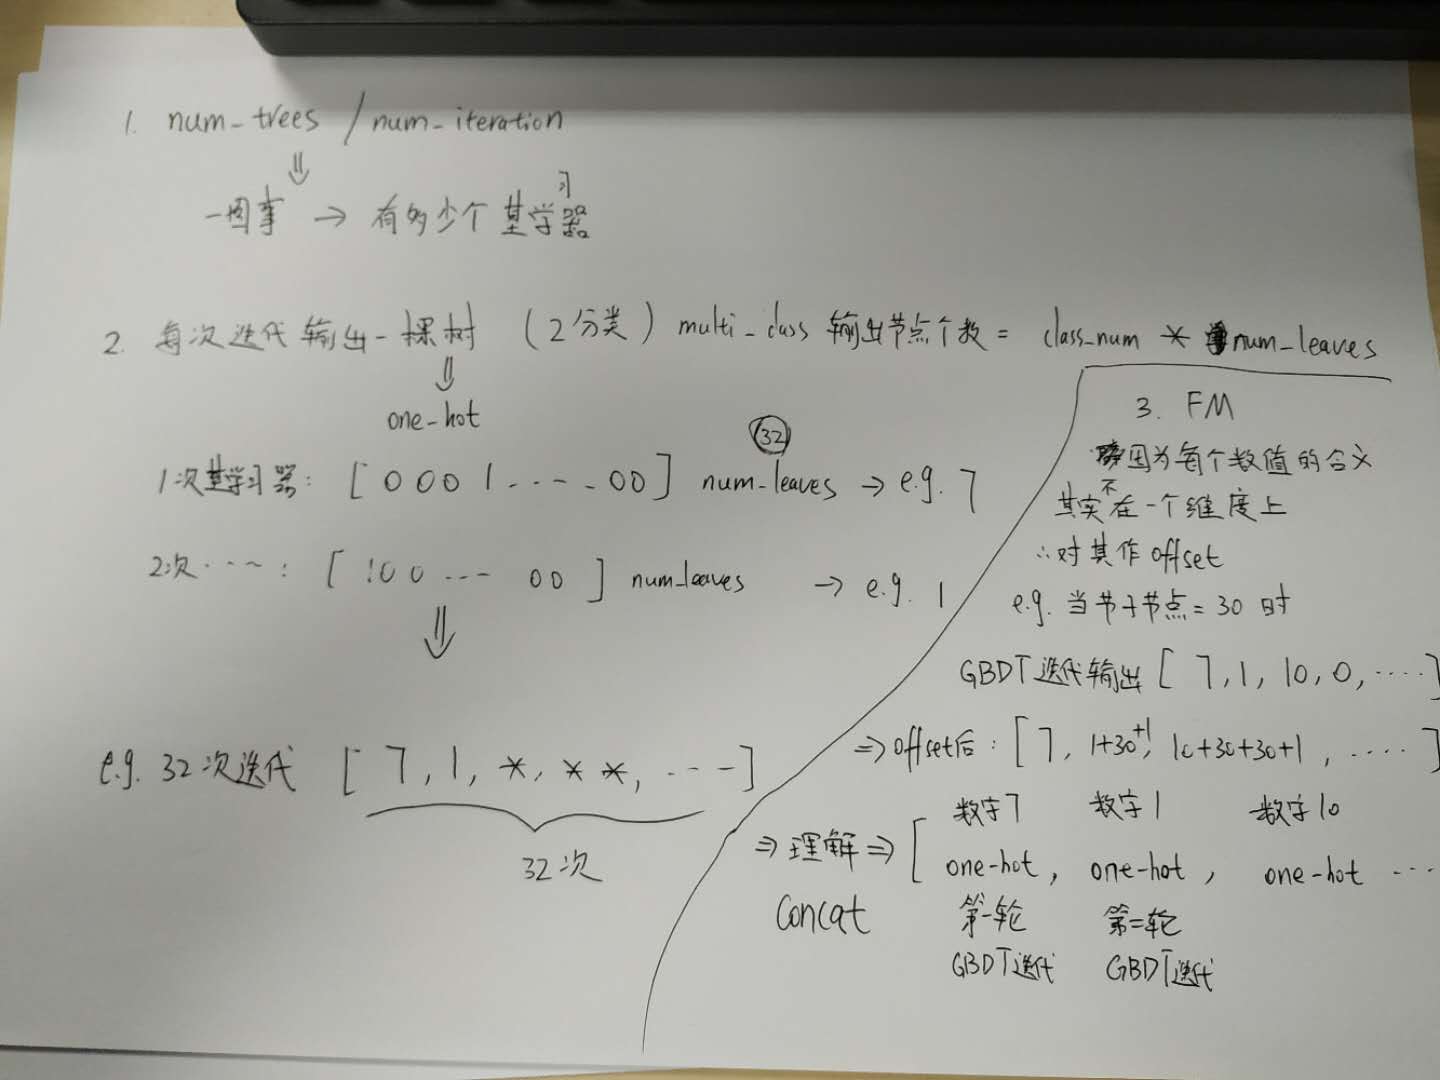 1. num_trees / num_iteration
⇓
一回事 → 有多少个基学习器
2. 每次迭代输出一棵树 (2分类) multi_class 输出节点个数 = class_num * num_leaves
⇓
one-hot
32
1次基学习器: [0001.....00] num_leaves → e.g. 7
2次.....: [100... 00] num_leaves → e.g. 1
⇓
e.g. 32次迭代 [7,1,*,**,...]
32次
3. FM
因为每个数值的含义
其实不在一个维度上
∴对其作offset
e.g. 当节子节点=30时
GBDT迭代输出[7,1,10,0,.....]
⇒offset后: [7, 1+30+1, 10+30+30+1, .....]
数字7 数字1 数字10
⇒理解⇒[one-hot, one-hot, one-hot ...
Concat 第一轮 第二轮
GBDT迭代 GBDT迭代